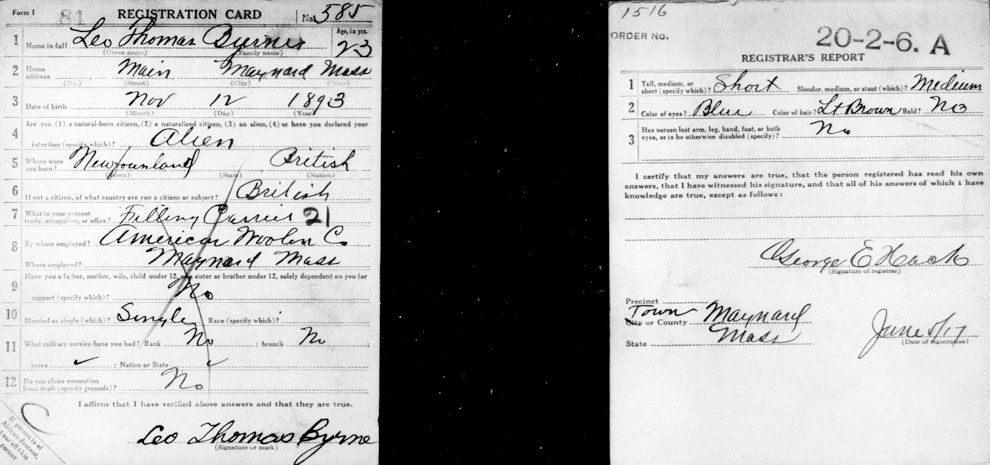 Form 1 81 REGISTRATION CARD No. 585
1 Name in full Leo Thomas Byrnes Age, in yrs. 23
(Given name) (Family name)
2 Home address Main Maynard Mass
(No.) (Street) (City)
3 Date of birth Nov 12 1893
(Month) (Day) (Year)
4 Are you (1) a natural-born citizen, (2) a naturalized citizen, (3) an alien, (4) or have you declared your
intention (specify which)? Alien
5 Where were you born? Newfounland British
(Town) (State) (Nation)
6 If not a citizen, of what country are you a citizen or subject? British
7 What is your present trade, occupation, or office? Filling Carrier 21
8 By whom employed? American Woolen Co
Where employed? Maynard Mass
9 Have you a father, mother, wife, child under 12, or a sister or brother under 12, solely dependent on you for
support (specify which)? No
10 Married or single (which)? Single Race (specify which)?
11 What military service have you had? Rank No ; branch No ;
years ✓ ; Nation or State ✓
12 Do you claim exemption from draft (specify grounds)? No
I affirm that I have verified above answers and that they are true.
C
If person is of
African descent,
tear off this
corner
Leo Thomas Byrne
(Signature or mark)
1516
ORDER NO.
20-2-6. A
REGISTRAR'S REPORT
1 Tall, medium, or short (specify which)? Short Slender, medium, or stout (which)? Medium
2 Color of eyes? Blue Color of hair? Lt Brown Bald? No
3 Has person lost arm, leg, hand, foot, or both
eyes, or is he otherwise disabled (specify)? No
I certify that my answers are true, that the person registered has read his own
answers, that I have witnessed his signature, and that all of his answers of which I have
knowledge are true, except as follows:
George E Hach
(Signature of registrar)
Precinct
Town
City or County Maynard
State Mass
June 5/17
(Date of registration)